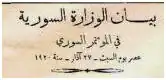 بيان الوزارة السورية
في المؤتمر السوري
عصر يوم السبت - ٢٧ آذار - سنة ١٩٢٠